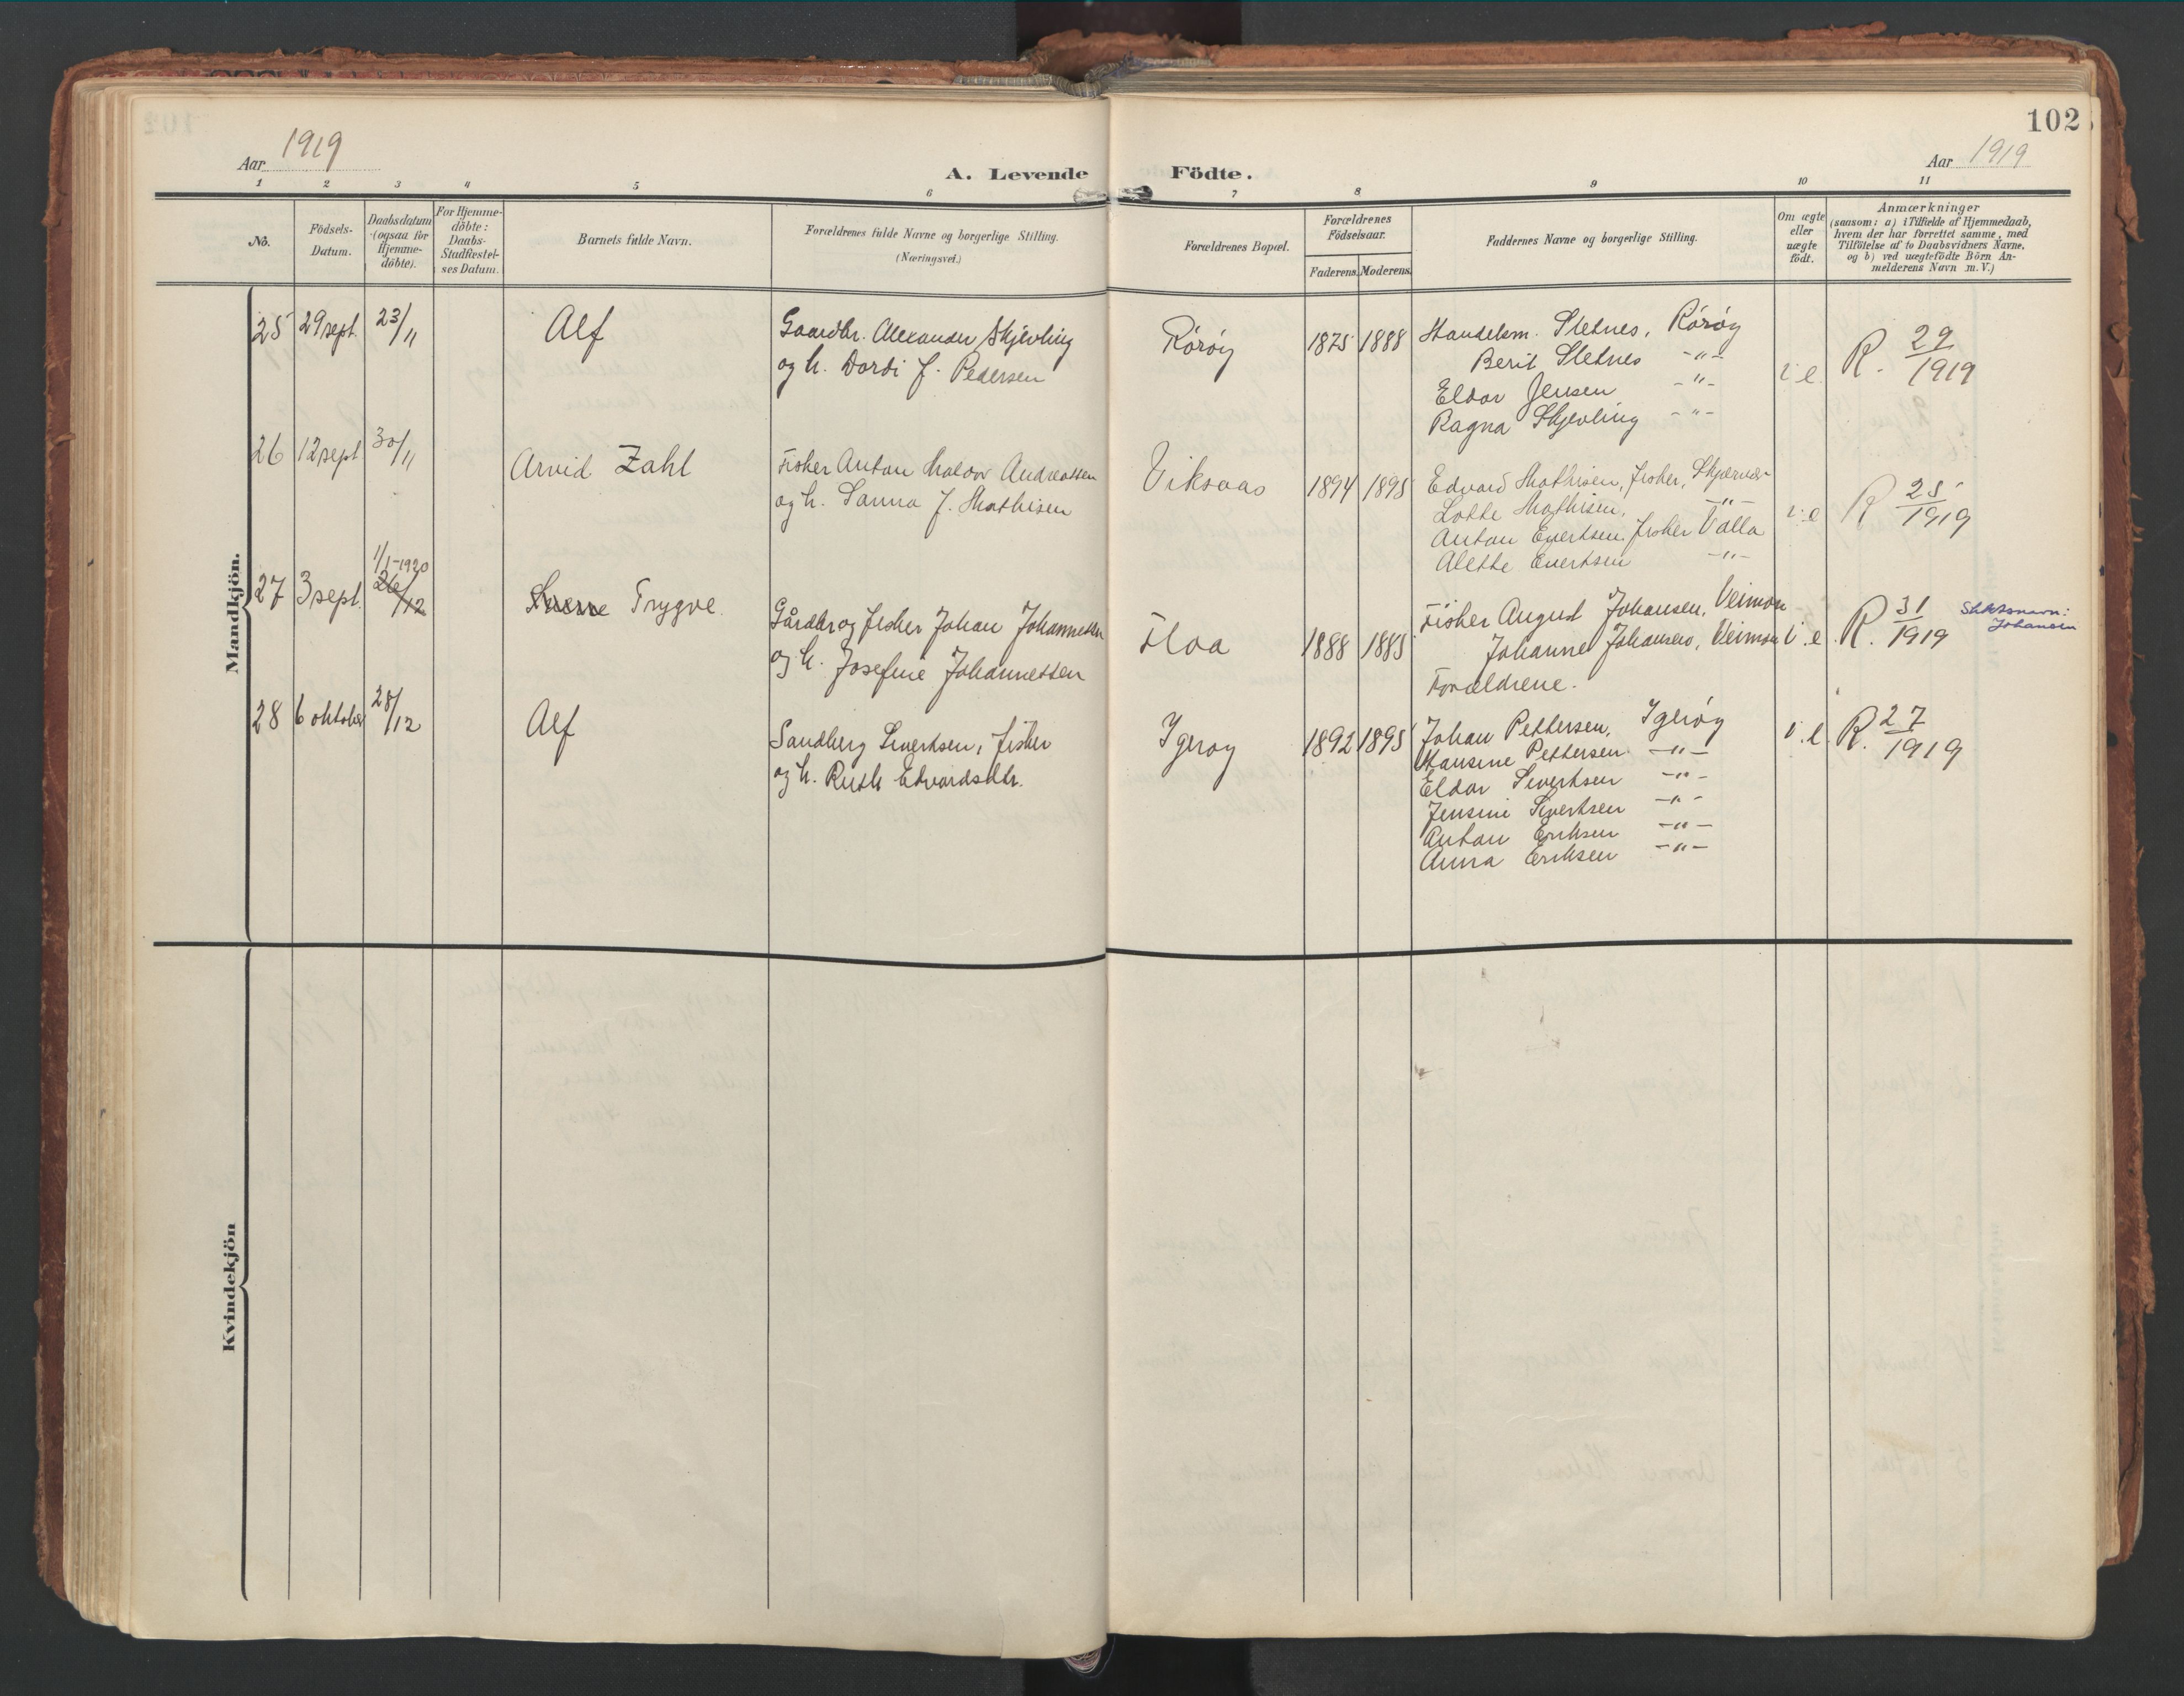 102
Aar 1919
Aar 1919
A. Levende Födte.
1 2 3 4 5 6 7 8 9 10 11
No.
Födsels-
Datum.
Daabsdatum
(ogsaa for
Hjemme-
döbte).
For Hjemme-
döbte:
Daabs-
Stadfæstel-
ses Datum.
Barnets fulde Navn.
Forældrenes fulde Navne og borgerlige Stilling.
(Næringsvei.)
Forældrenes Bopæl.
Forældrenes
Födselsaar.
Faderens. Moderens.
Faddernes Navne og borgerlige Stilling.
Om ægte
eller
uægte
födt.
Anmærkninger
(saasom: a) i Tilfælde af Hjemmedaab,
hvem der har forrettet samme, med
Tilföielse af to Daabsvidners Navne,
og b) ved uægtefödte Börn An-
melderens Navn m. V.)
Mandkjön.
25 29 sept. 23/11 Alf
Gaardbr. Alexander Skjevling
og h. Dordi f. Pedersen
Röröy 1875 1888
Handelsm. Sletnes, Röröy
Berit Sletnes -"-
Eldor Jensen -"-
Ragna Skjevling -"-
i e. R. 29/1919
26 12 sept 30/11 Arvid Zahl
Fisker Anton Andreassen
og h. Sanna f. Mathisen
Viksaas 1894 1895
Edvard Mathisen, fisker, Skjærvær
Lotte Mathisen, -"-
Anton Evertsen. fisker Valla
Alette Evertsen -"-
i e R 25/1919
27 3 sept. 1/1-1920
26/12
Sverre Trygve.
Gårdbr og fisker Johan Johannessen
og h. Josefine Johannessen
Floa 1888 1885
Fisker August Johansen, Veimon
Johanne Johansen, Veimon
Forældrene.
i. e. R. 31/1919
Slektsnavn:
Johansen
28 6 oktober 28/12 Alf
Sandberg Sivertsen, fisker
og h. Ruth Edvardsdtr.
Igeroy 1892 1895
Johan Pettersen, Igeröy
Hansine Pettersen -"-
Eldor Sivertsen -"-
Jensine Sivertsen -"-
Anton Eriksen -"-
Anna Eriksen -"-
i. e. R. 27/1919
Kvindekjön